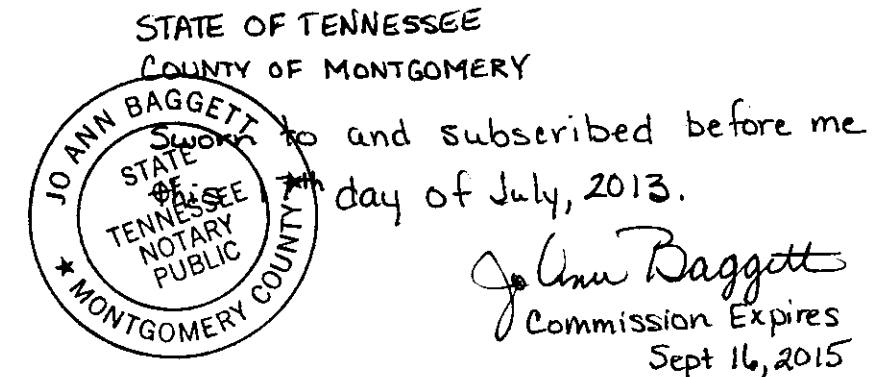 STATE OF TENNESSEE
COUNTY OF MONTGOMERY
Sworn to and subscribed before me
this day of July, 2013.
Jo Ann Baggett
Commission Expires
Sept 16, 2015
JO ANN BAGGETT
STATE
OF
TENNESSEE
NOTARY
PUBLIC
★ MONTGOMERY COUNTY ★